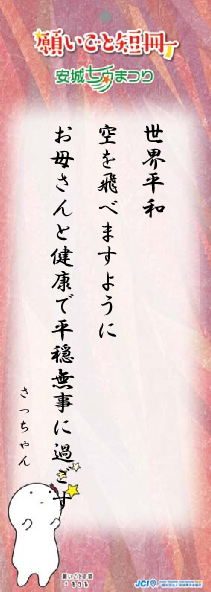 願いごと短冊
安城七夕まつり
世界平和
空を飛べますように
お母さんと健康で平穏無事に過ご
さっちゃん
願いごとの国
JCI